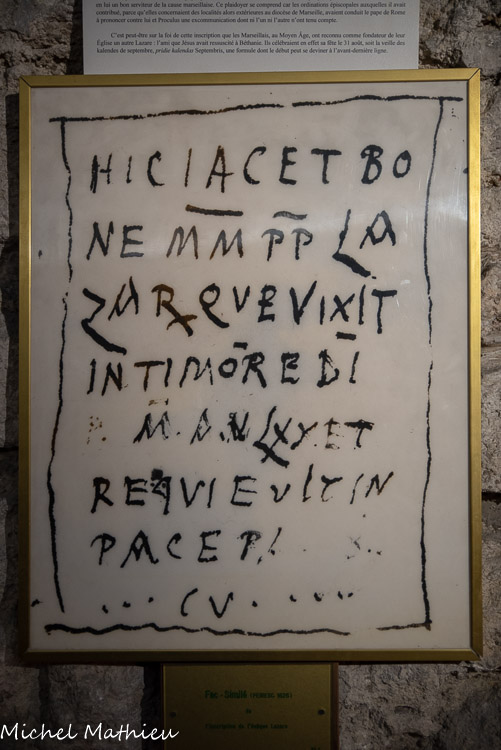 en lui un bon serviteur de la cause marseillaise. Ce plaidoyer se comprend car les ordinations épiscopales auxquelles il avait
contribué, parce qu'elles concernaient des localités alors extérieures au diocèse de Marseille, avaient conduit le pape de Rome
à prononcer contre lui et Proculus une excommunication dont ni l'un ni l'autre n'ont tenu compte.
C'est peut-être sur la foi de cette inscription que les Marseillais, au Moyen Âge, ont reconnu comme fondateur de leur
Église un autre Lazare : l'ami que Jésus avait ressuscité à Béthanie. Ils célébraient en effet sa fête le 31 août, soit la veille des
kalendes de septembre, pridie kalendas Septembris, une formule dont le début peut se deviner à l'avant-dernière ligne.
HIC IACET BO
NE MM PP LA
ZAR QVE VIXIT
IN TIMORE DI
P. M. A.N LXX ET
REQVIEVIT IN
PACE P
... CV. ....
Fac-Similé
de
Michel Mathieu